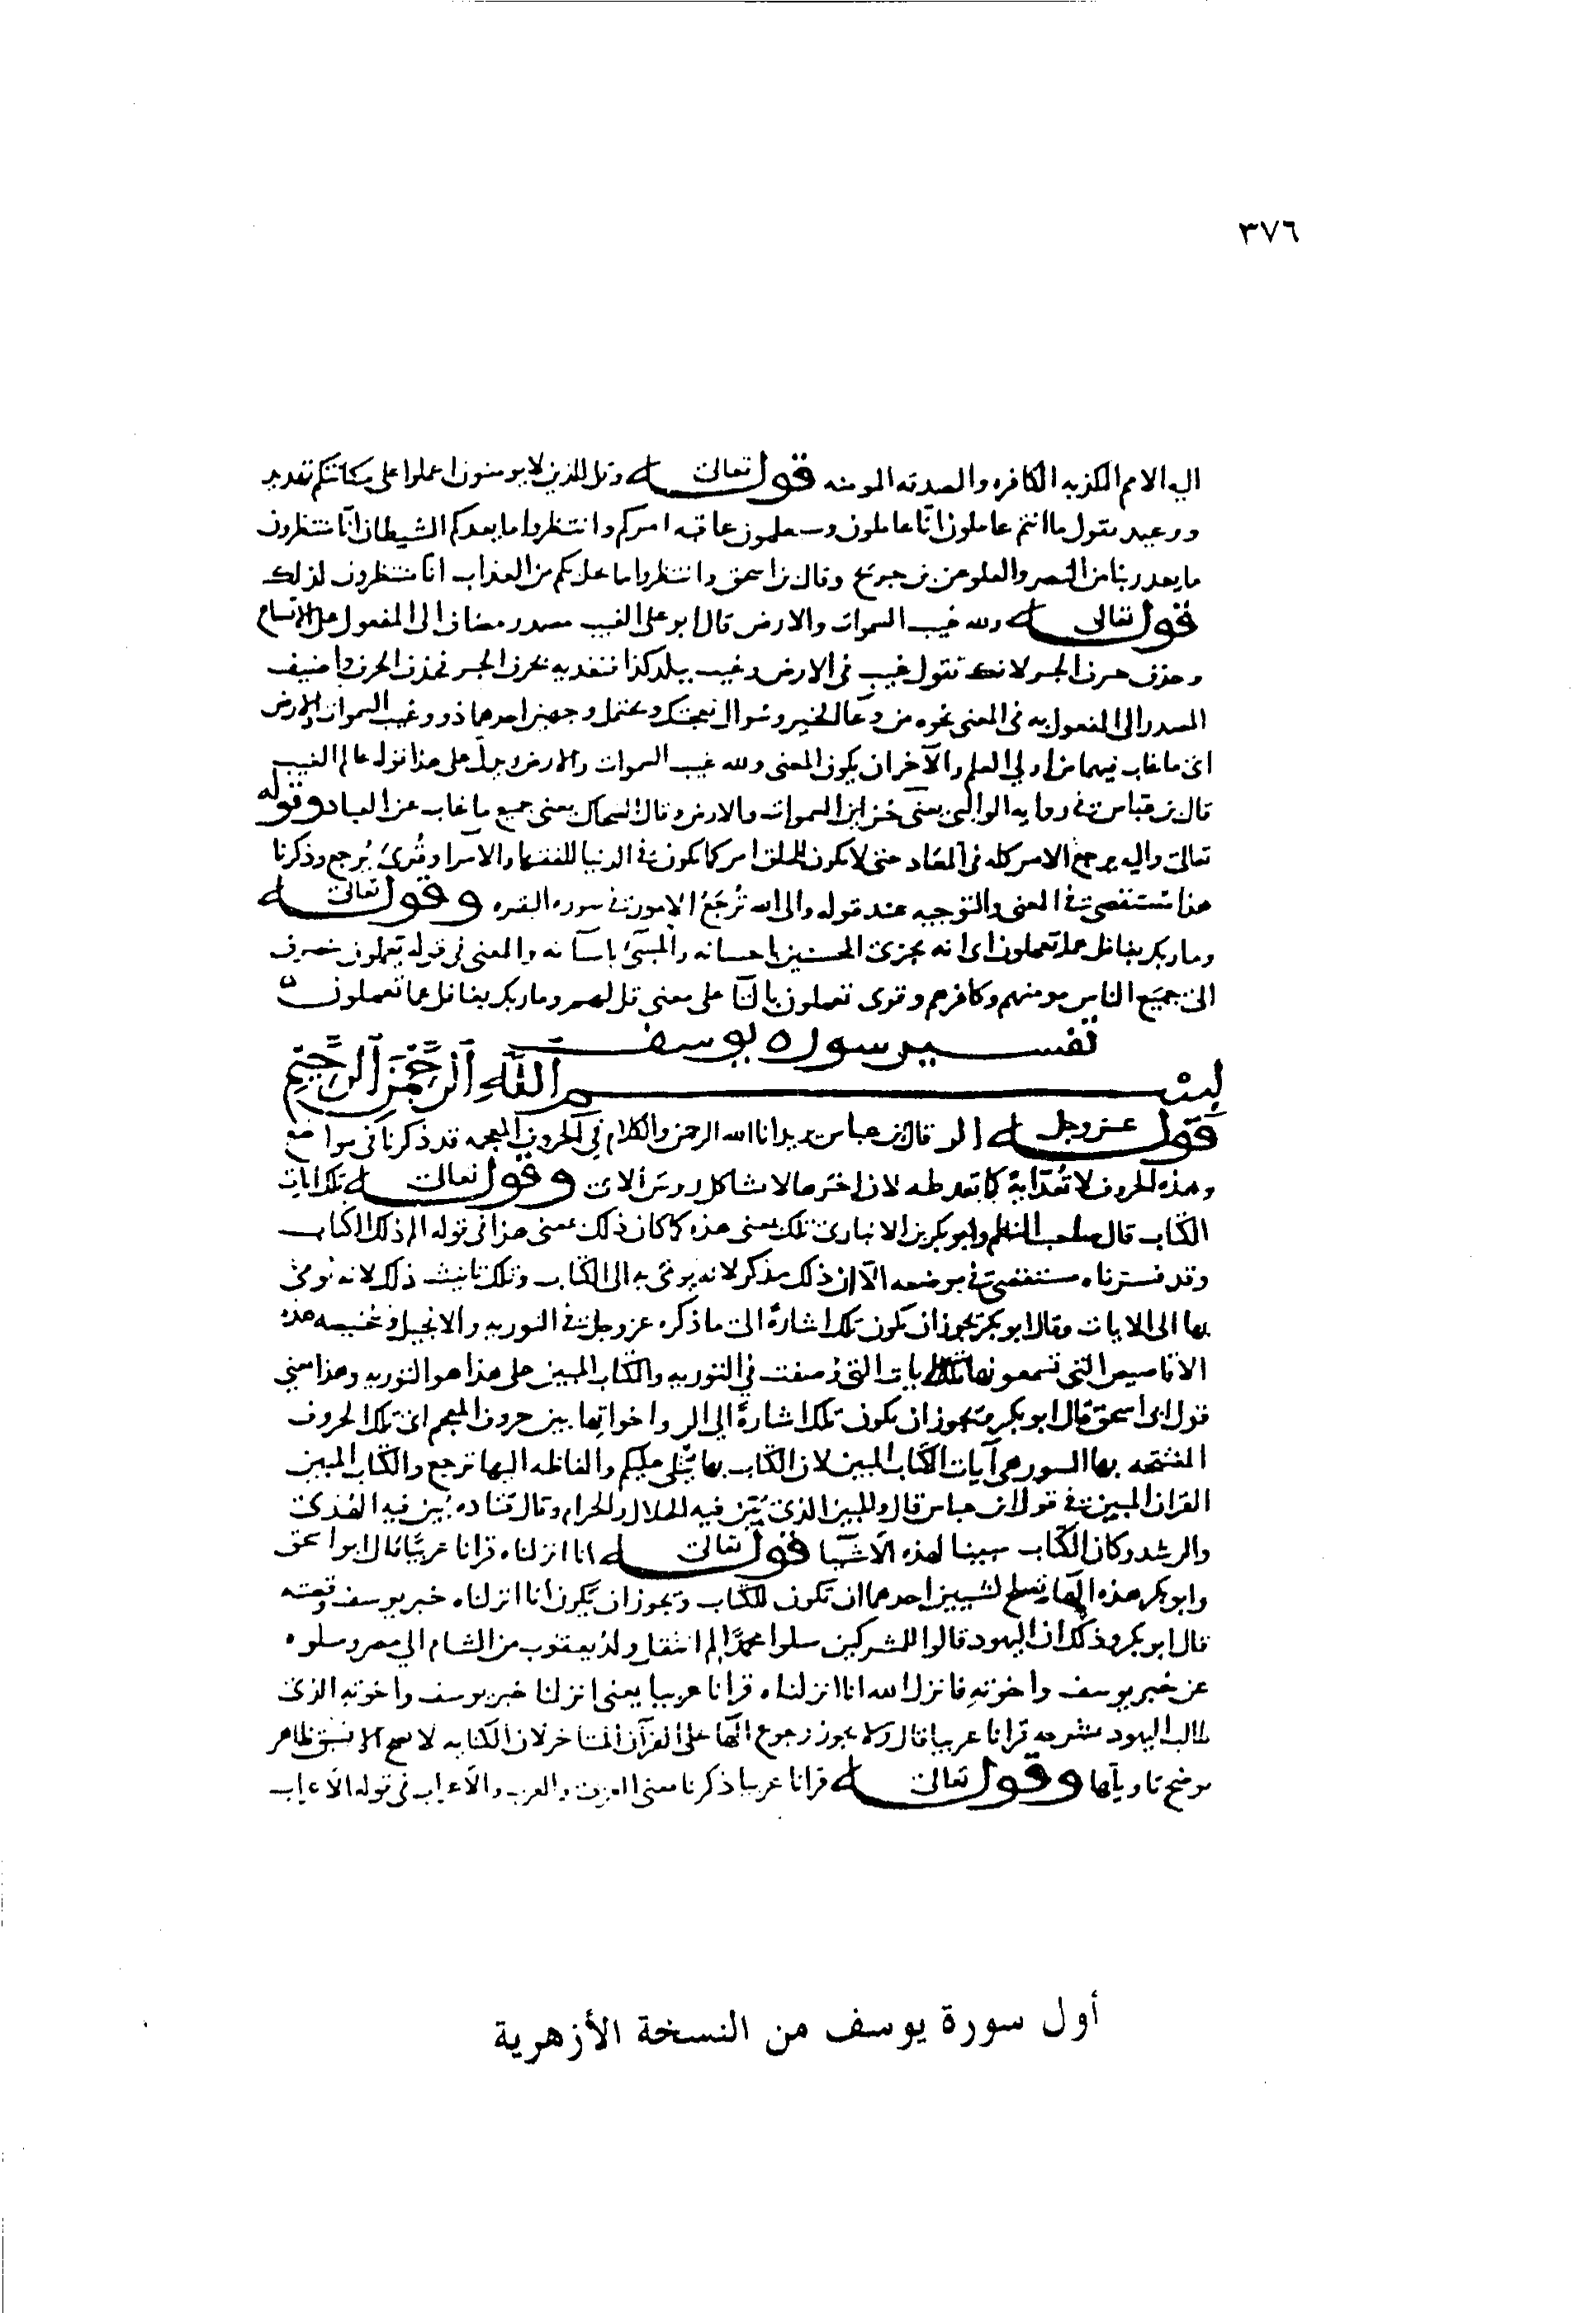 ٣٧٦
اليه الامم المكذبه الكافره والمصدقه المومنه قوله تعالى وقل للذين لا يومنون اعملوا على مكانتكم تهديد
ووعيد يقول ما انتم عاملون انا عاملون وستعلمون عاقبه امركم وانتظروا ما يعدكم الشيطان انا منتظرون
ما يعدنا ربنا من النصر والعلو عن بن جريج وقال بن اسحق وانتظروا ما يحل بكم من العذاب انا منتظرون لذلك
قوله تعالى ولله غيب السموات والارض قال ابو على الغيب مصدر مضاف الى المفعول على الاتساع
وحذف حرف الجر لانك تقول غيب فى الارض وغيب ببلد كذا فتعديه بحرف الجر فحذف الحرف واضيف
المصدر الى المفعول به فى المعنى نحوه من دعا الخير وسوال نعجتك ويحتمل وجهين احدهما ذو وغيب السموات والارض
اى ما غاب فيهما من اولى العلم والآخر ان يكون المعنى ولله غيب السموات والارض ويدل على هذا قوله عالم الغيب
قال بن عباس فى روايه الوالبى يعنى خزاين السموات والارض وقال الضحاك يعنى جميع ما غاب عن العباد وقوله
تعالى واليه يرجع الامر كله فى المعاد حتى لا يكون للخلق امر كما يكون فى الدنيا للفقها والامرا وقُرئ يُرجع وذكرنا
هذا مستقصى فى المعنى والتوجيه عند قوله والى الله تُرجَع الامور فى سوره البقره وقوله تعالى
وما ربك بغافل عما تعملون اى انه يجزى المحسنين باحسانه والمسئ باسآته والمعنى فى قوله يعملون منصرف
الى جميع الناس مومنهم وكافرهم وقرى تعملون بالتا على معنى قل لهم وما ربك بغافل عما تعملون
تفسير سوره يوسف
بسم الله الرحمن الرحيم
قوله عز وجل الر قال بن عباس يريد انا الله الرحمن والكلام فى الحروف المعجمه قد ذكرنا فى مواضع
وهذه الحروف لا تُعد اية كما تعد طه لان اخرها لا يشاكل روس الاى وقوله تعالى تلك ايات
الكتاب قال صاحب النظم وابو بكر بن الانبارى تلك بمعنى هذه كما كان ذلك بمعنى هذا فى قوله الم ذلك الكتاب
وقد فسرناه مستقصى فى موضعه الا ان ذلك مذكر لانه يومى به الى الكتاب وتلك تانيث ذلك لانه نومى
بها الى الايات وقال ابو بكر يجوز ان يكون تلك اشارة الى ما ذكره عز وجل فى التوريه والانجيل هذه
الاقاصيص التى تسمعونها الايات التى وُصفت فى التوريه والكتاب المبين على هذا هو التوريه وهذا معنى
قول ابى اسحق قال ابو بكر ويجوز ان يكون تلك اشارة الى الر واخواتها بين حروف المعجم اى تلك الحروف
المفتتحه بها السور هى آيات الكتاب المبين لان الكتاب بها يتلى عليكم والفاظه اليها ترجع والكتاب المبين
القران المبين فى قول ابن عباس قال والمبين الذى يُبَيّن فيه الحلال والحرام وقال قتاده بَيّن فيه الهدى
والرشد وكان الكتاب مبينا لهذه الاشيا قوله تعالى انا انزلناه قرانا عربيًا قال ابو اسحق
وابو بكر هذه الها تصلح لشيين احدهما ان تكون للكتاب ويجوز ان يكون انا انزلناه خبر يوسف وقصته
قال ابو بكر وذلك ان اليهود قالوا للمشركين سلوا محمدًا لم انتقل ولد يعقوب من الشام الى مصر وسلوه
عن خبر يوسف واخوته فانزل الله انا انزلناه قرانا عربيا يعنى انزلنا خبر يوسف واخوته الذى
طالب اليهود بشرحه قرانا عربيا قال ولا يجوز رجوع الها على القرآن المتاخر لان الكنايه لا تصح الا بسبق ظاهر
موضح تاويلها وقوله تعالى قرانا عربيا ذكرنا معنى القران والعرب والاعراب فى قوله الاعراب
أول سورة يوسف من النسخة الأزهرية